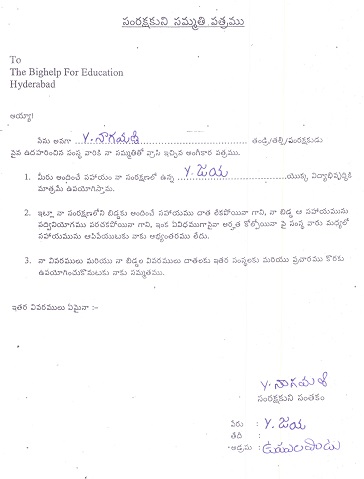 సంరక్షకుని సమ్మతి పత్రము
To
The Bighelp For Education
Hyderabad
అయ్యా!
నేను అనగా Y. నాగమణి తండ్రి/తల్లి/సంరక్షకుడు
పైన ఉదహరించిన సంస్థ వారికి నా సమ్మతితో వ్రాసి ఇచ్చిన అంగీకార పత్రము.
1. మీరు అందించే సహాయం నా సంరక్షణలో ఉన్న Y. జయ యొక్క విద్యాభివృద్ధికి
మాత్రమే ఉపయోగిస్తాను.
2. ఇట్లా నా సంరక్షణలోని బిడ్డకు అందించే సహాయము దాత లేకపోయినా గాని, నా బిడ్డ ఆ సహాయమును
సద్వినియోగము పరచకపోయినా గాని, ఇంక ఏవిధముగానైనా అర్హత కోల్పోయినా పై సంస్థ వారు మధ్యలో
సహాయమును ఆపివేయుటకు నాకు అభ్యంతరము లేదు.
3. నా వివరములు మరియు నా బిడ్డల వివరములు దాతలకు ఇతర సంస్థలకు మరియు ప్రచారము కొరకు
ఉపయోగించుకొనుటకు నాకు సమ్మతము.
ఇతర వివరములు ఏమైనా :-
Y. నాగమణి
సంరక్షకుని సంతకం
పేరు : Y. జయ
తేదీ :
అడ్రసు :